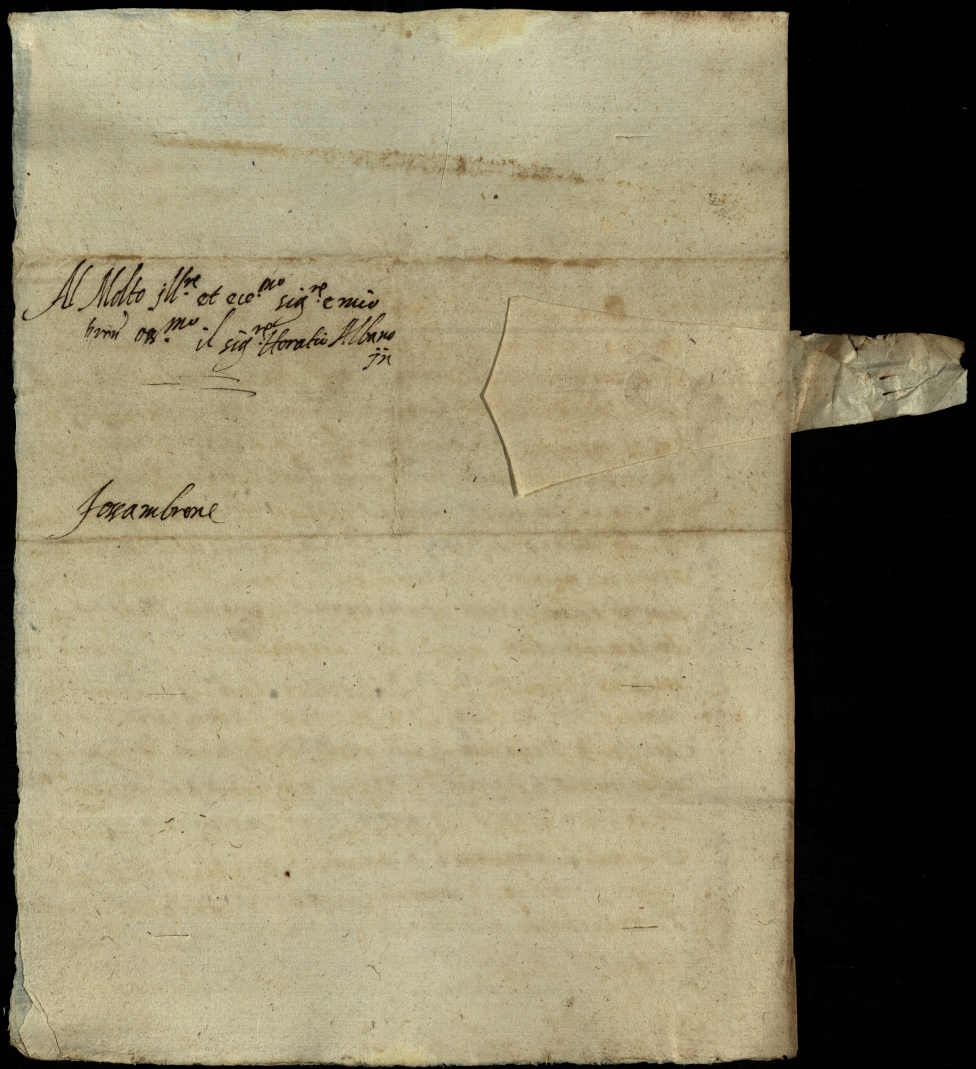 Al Molto Ill.re et ecc.mo sig.re e mio
oss.mo il sig.re Horatio Albano
in
fossambrone